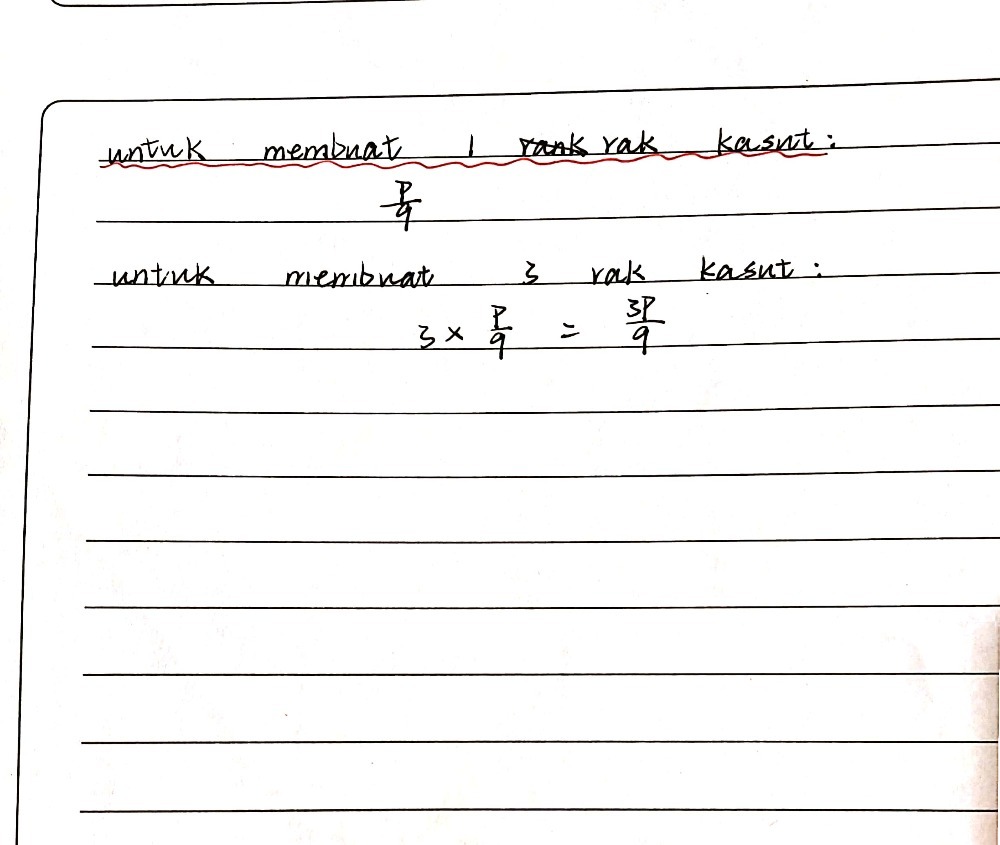 untuk membuat 1 rank rak kasut:
P/9
untuk membuat 3 rak kasut:
3 × P/9 = 3P/9